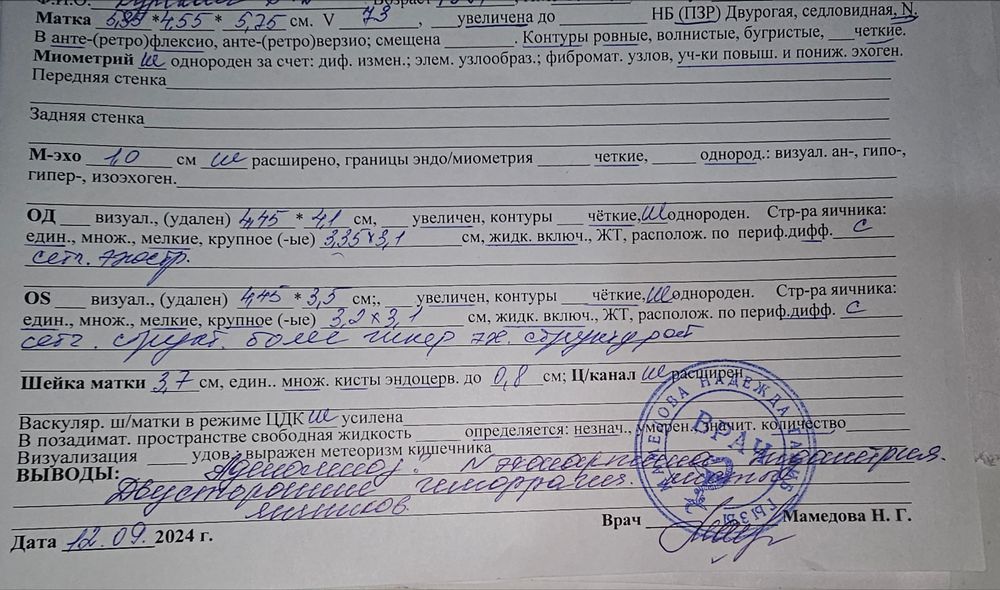 Ф.И.О. Возраст
Матка 5,85 *4,55 * 5,75 см. V 73, увеличена до НБ (ПЗР) Двурогая, седловидная, N.
В анте-(ретро)флексио, анте-(ретро)верзио; смещена . Контуры ровные, волнистые, бугристые, четкие.
Миометрий не однороден за счет: диф. измен.; элем. узлообраз.; фибромат. узлов, уч-ки повыш. и пониж. эхоген.
Передняя стенка
Задняя стенка
М-эхо 1,0 см не расширено, границы эндо/миометрия четкие, однород.: визуал. ан-, гипо-,
гипер-, изоэхоген.
ОД визуал., (удален) 4,45 * 4,1 см, увеличен, контуры чёткие, не однороден. Стр-ра яичника:
един., множ., мелкие, крупное (-ые) 3,35 х 3,1 см, жидк. включ., ЖТ, располож. по периф.дифф. с
сетч.
OS визуал., (удален) 4,45 * 3,5 см;, увеличен, контуры чёткие, не однороден. Стр-ра яичника:
един., множ., мелкие, крупное (-ые) 3,2 х 3,1 см, жидк. включ., ЖТ, располож. по периф.дифф. с
сетч. более гипер эх. структурой
Шейка матки 3,7 см, един.. множ. кисты эндоцерв. до 0,8 см; Ц/канал не расширен
Васкуляр. ш/матки в режиме ЦДК не усилена
В позадимат. пространстве свободная жидкость определяется: незнач., умерен., значит. количество
Визуализация удов., выражен метеоризм кишечника
ВЫВОДЫ: Аденомиоз. N эндометрия.
Двусторонние яичников.
ВРАЧ
МАМЕДОВА НАДЕЖДА ГАНБ ГЫЗЫ
Врач Мамедова Н. Г.
Дата 12.09. 2024 г.